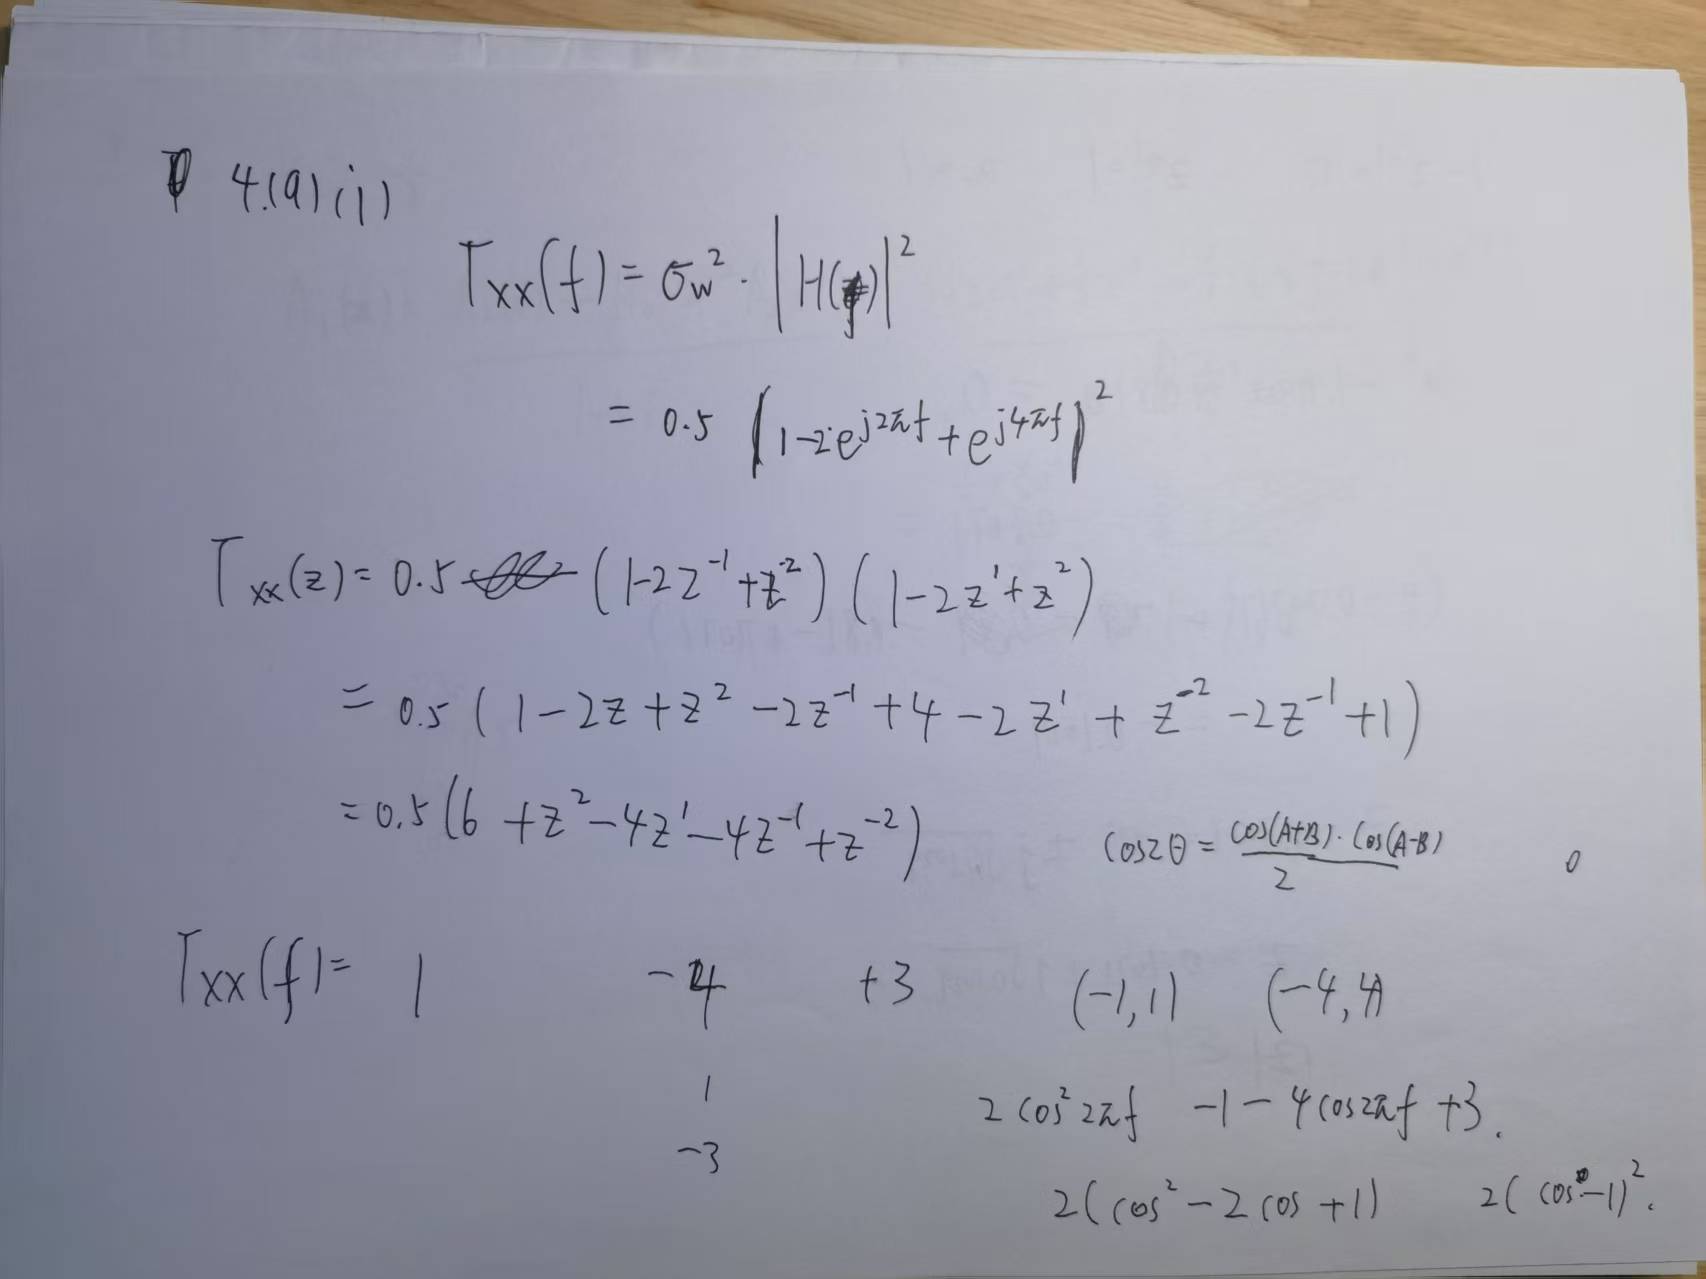 4.(a)(i)
Γxx(f) = σw² · |H(f)|²
= 0.5 |1-2e^{j2πf} + e^{j4πf}|²
Γxx(z) = 0.5 (1-2z⁻¹+z⁻²)(1-2z¹+z²)
= 0.5 (1-2z+z²-2z⁻¹+4-2z¹+z⁻²-2z⁻¹+1)
= 0.5 (6+z²-4z¹-4z⁻¹+z⁻²)
cos2θ = cos(A+B)·cos(A-B) / 2
0
Γxx(f) = 1 -4 +3 (-1,1) (-4,4)
1
-3
2cos²2πf -1-4cos2πf +3.
2(cos²-2cos+1) 2(cos-1)².